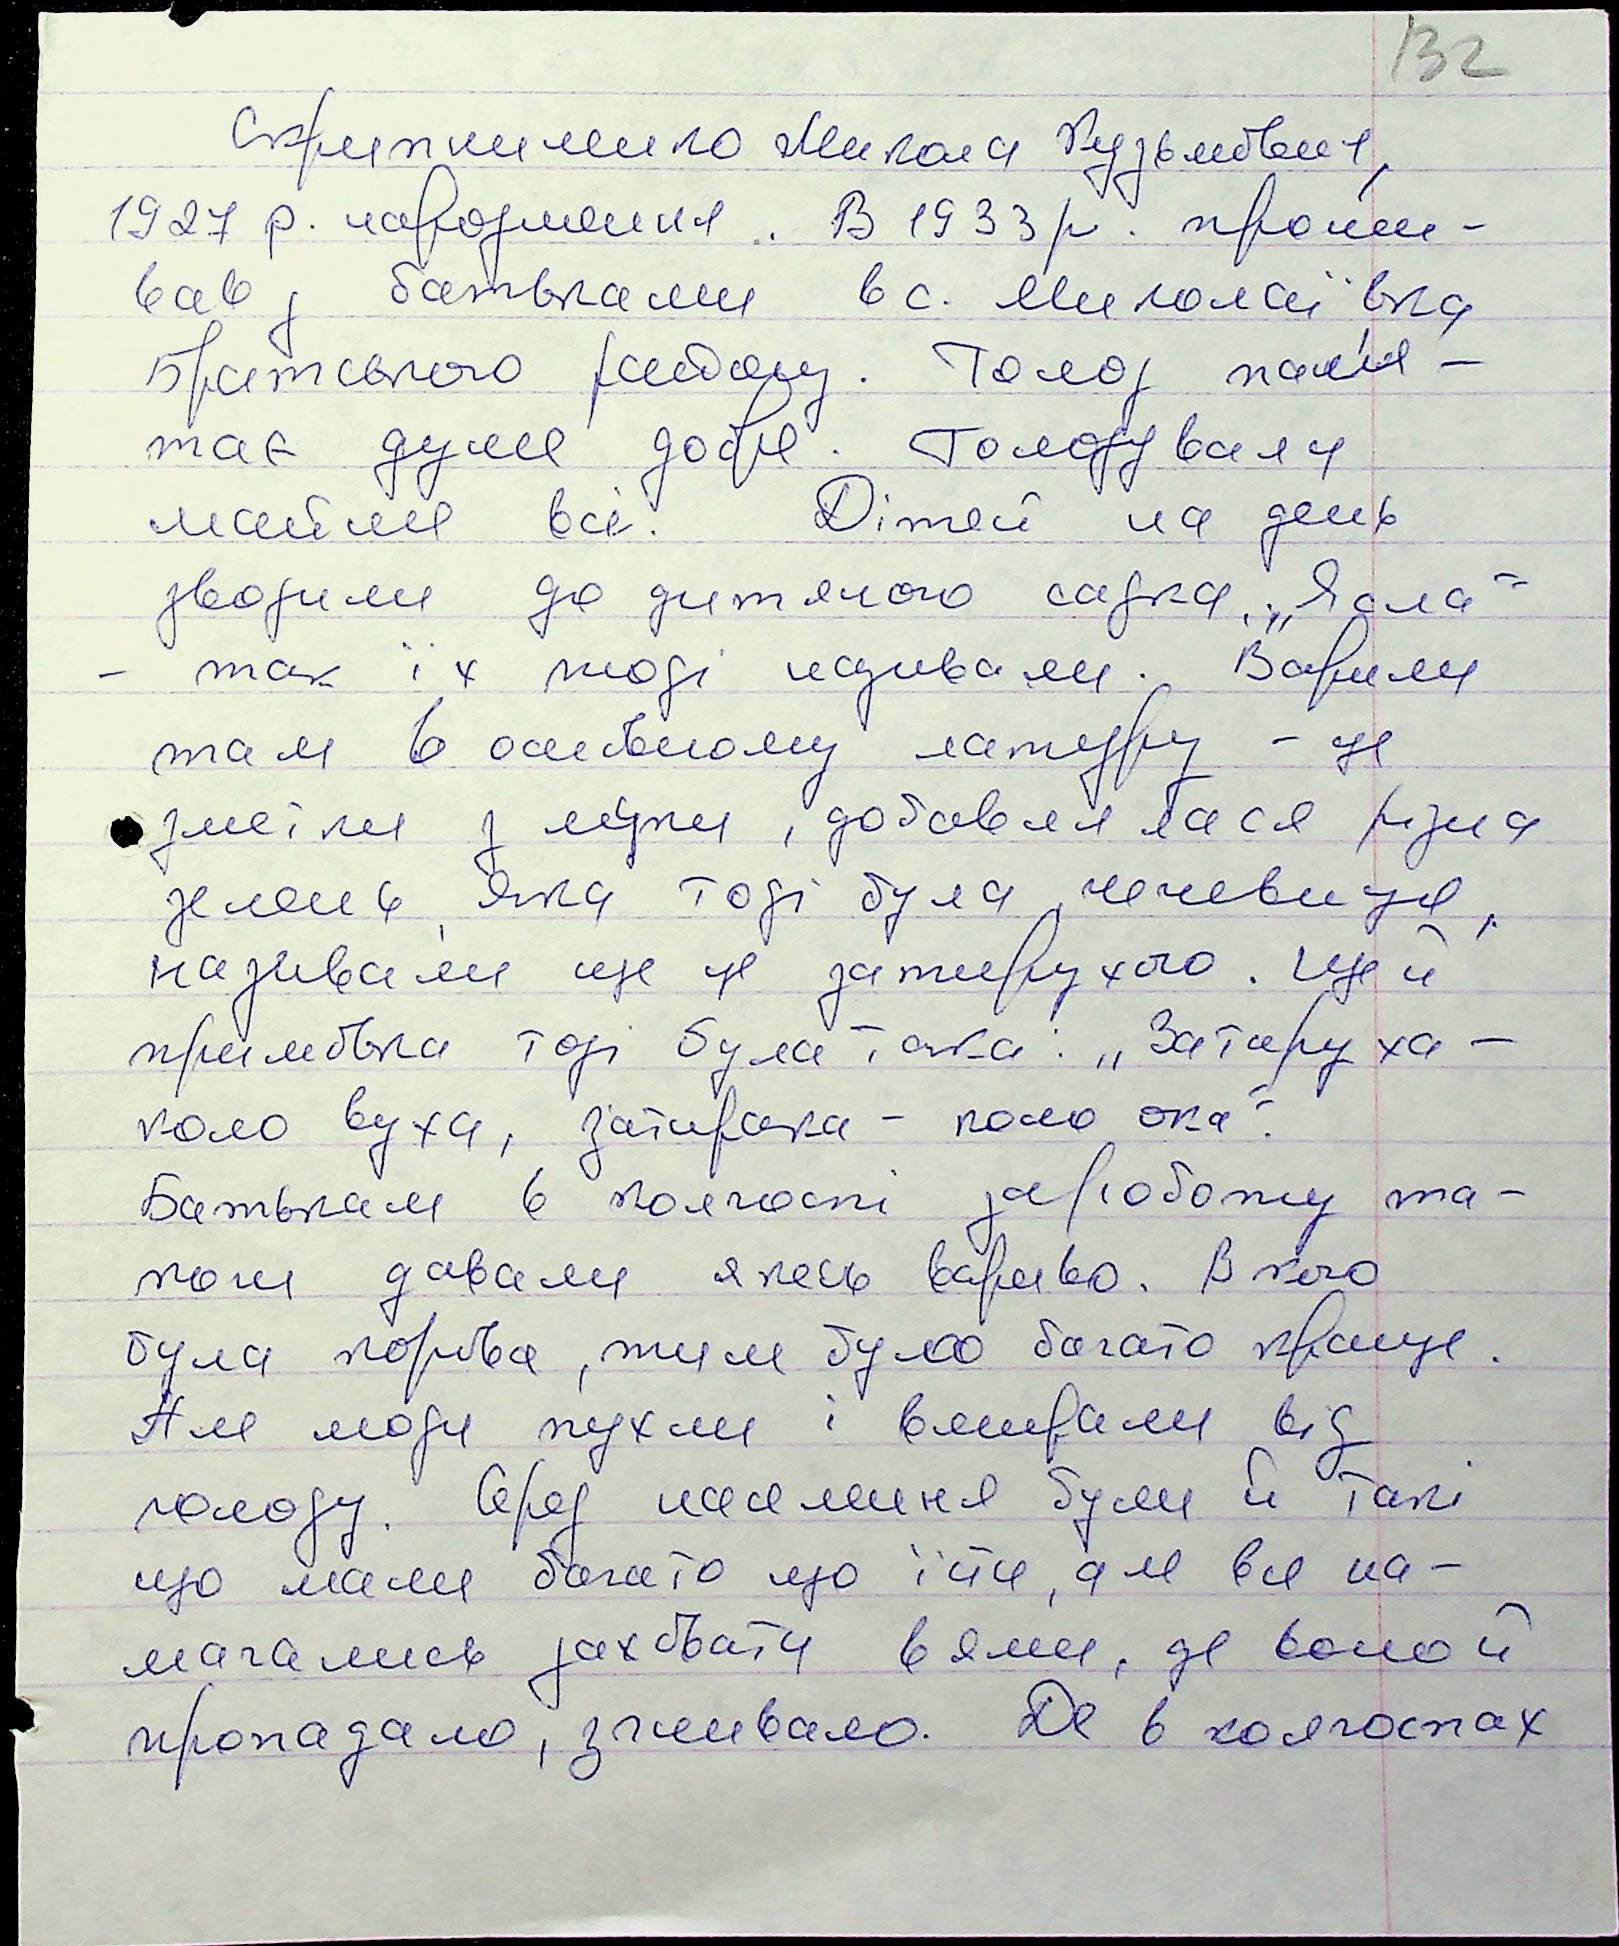 132
Скрипниченко Микола Кузьмович,
1927 р. народження. В 1933 р. прожи-
вав з батьками в с. Миколаївка
Братського району. Голод пам'я-
тає дуже добре. Голодували
майже всі. Дітей на день
зводили до дитячого садка. „Ясла"
- так їх тоді називали. Варили
там в основному затірку - це
змітки з муки, добавлялася різна
зелень, яка тоді була, чечевиця,
називали ще це затирухою. Ще й
примовка тоді була така: „Затируха -
коло вуха, затирака - коло ока".
Батькам в колгоспі за роботу та-
кож давали якесь вариво. В кого
була корова, тим було багато краще.
Але люди пухли і вмирали від
голоду. Серед населення були й такі
що мали багато що їсти, але все на-
магались заховати в ями, де воно й
пропадало, згнивало. Де в колгоспах